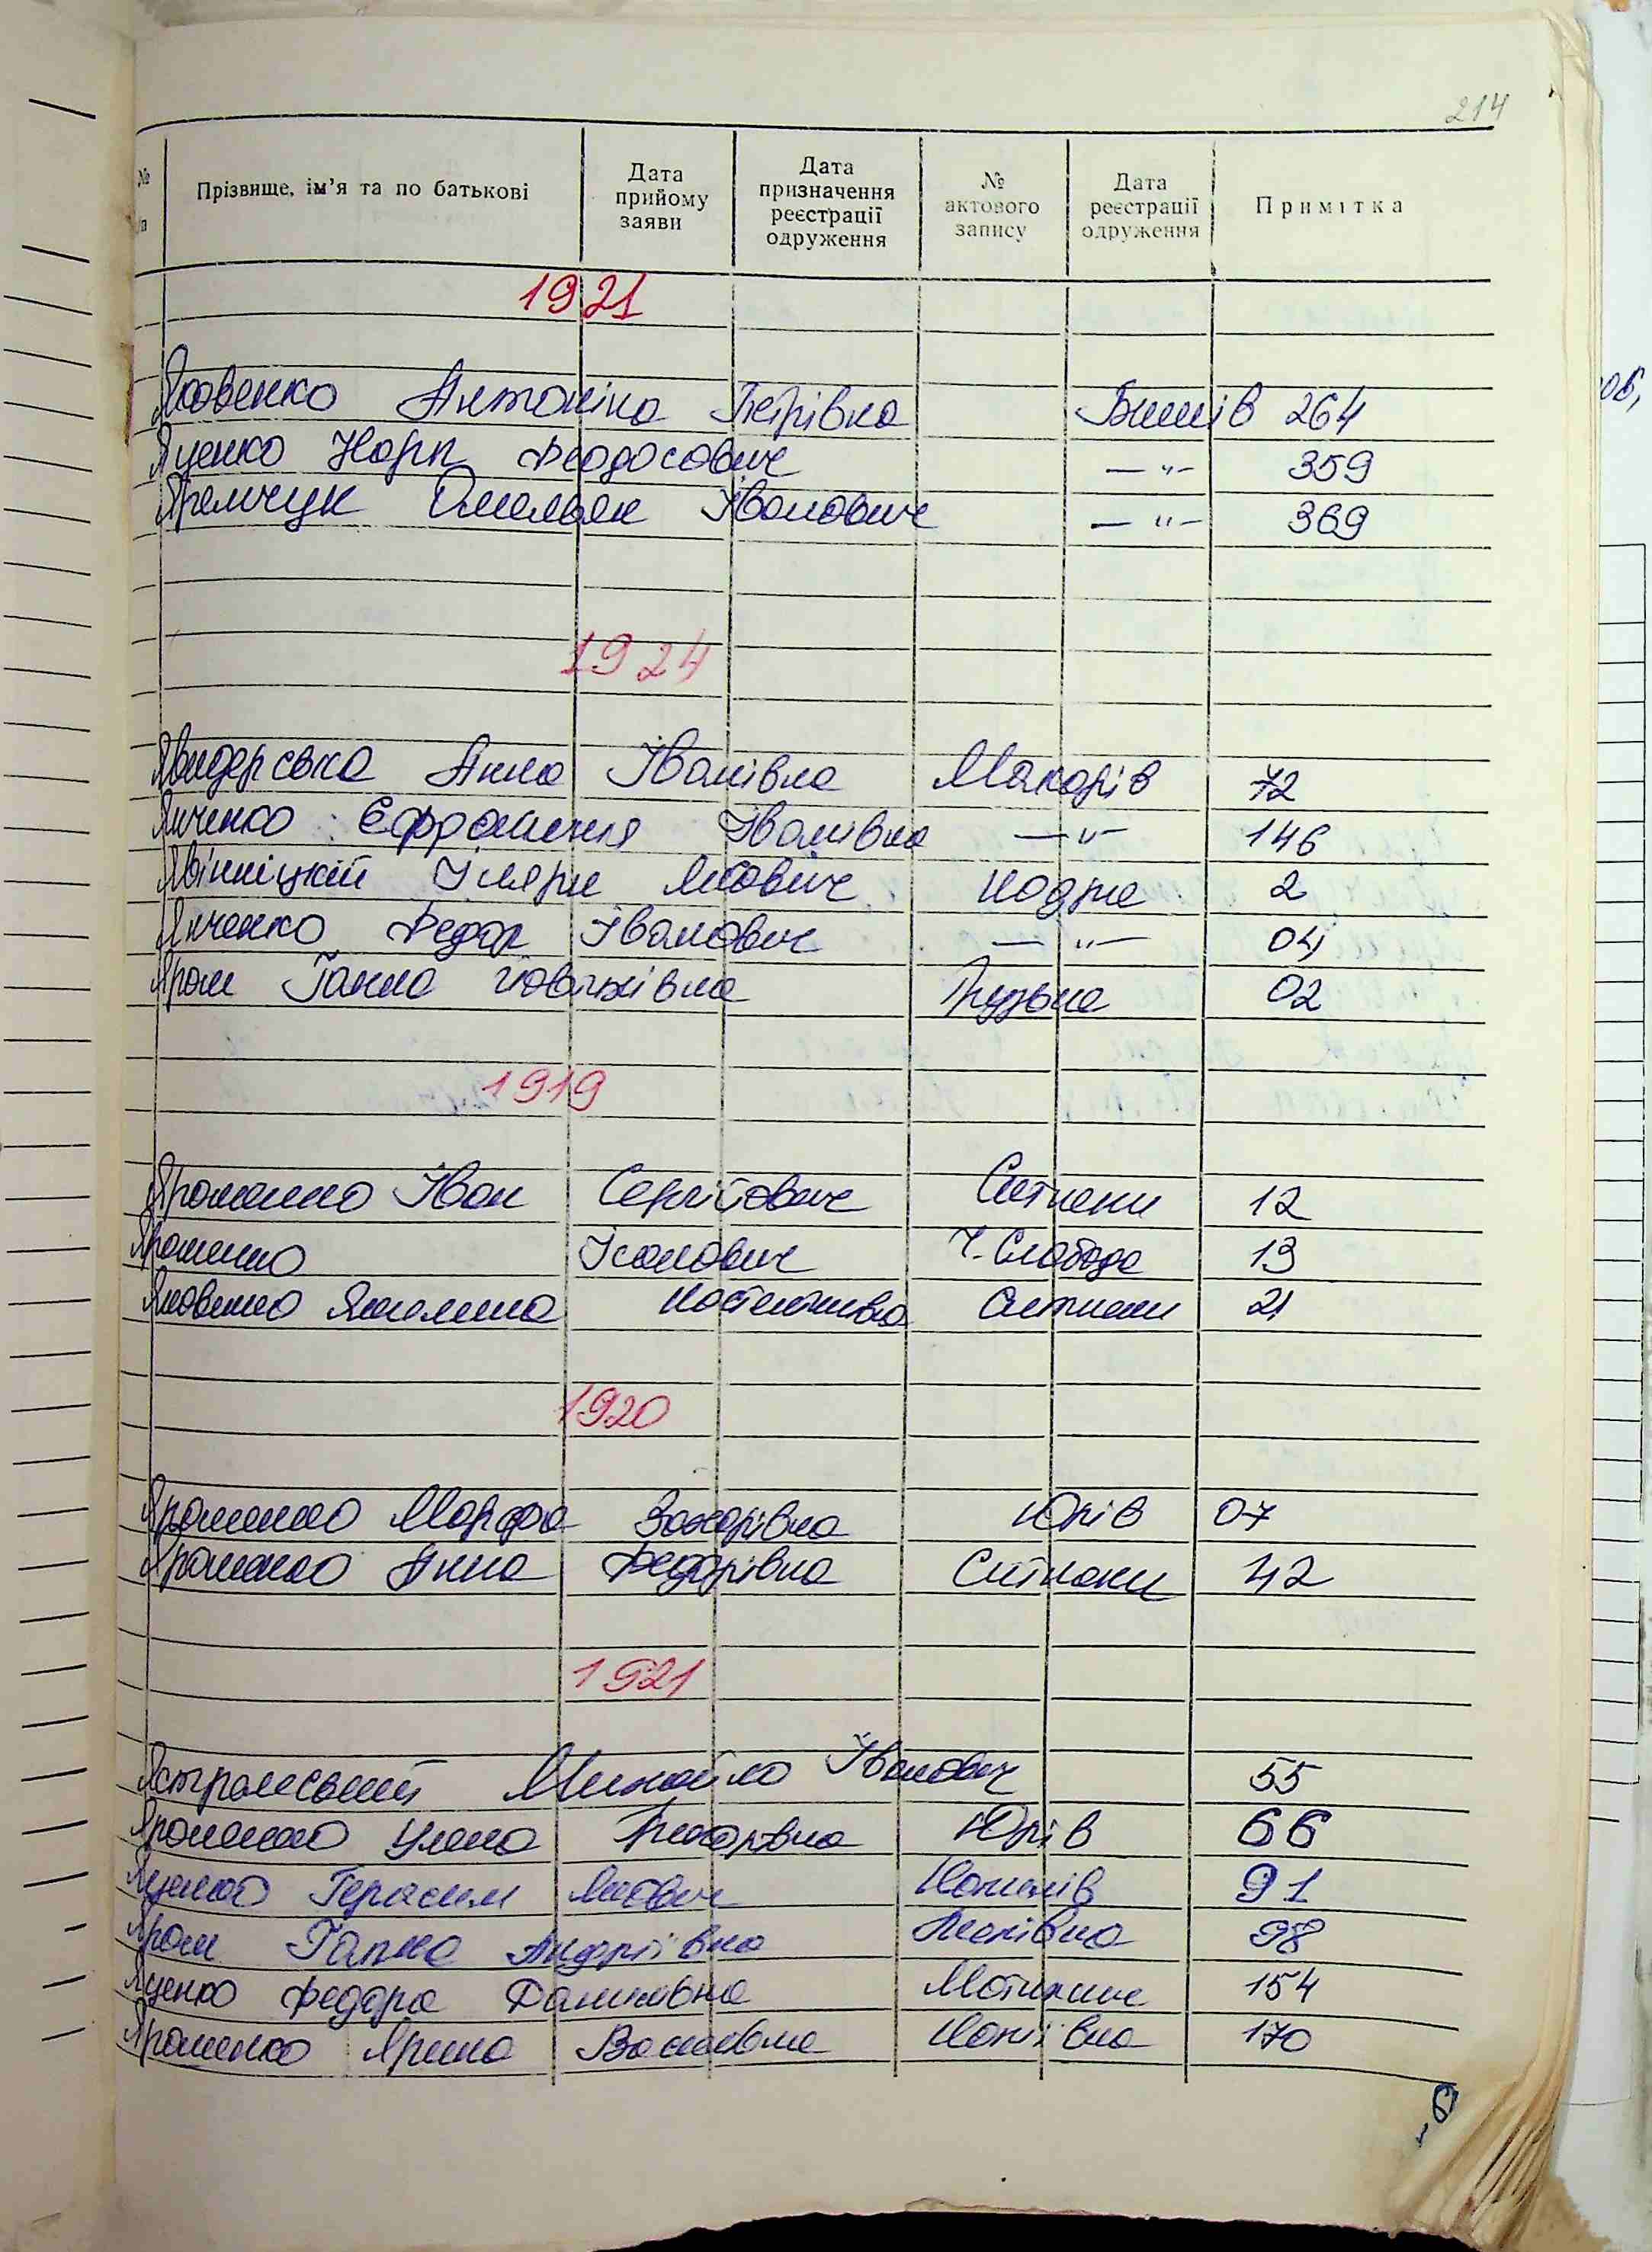 214
№ п/п Прізвище, ім'я та по батькові Дата прийому заяви Дата призначення реєстрації одруження № актового запису Дата реєстрації одруження Примітка
1921
Яковенко Антоніна Петрівна Бишів 264
Яценко Карп Феодосович —"— 359
Яремчук Омельян Іванович —"— 369
1924
Анна Іванівна Макарів 72
Янченко Єфросинія Іванівна —"— 146
Явінніцкій Іляри Якович Кодра 2
Янченко Федор Іванович —"— 04
Ярош Ганна 02
1919
Ярошенко Іван Сергійович Ситняки 12
Ярошенко Ісакович Ч. Слобода 13
Яковенко Якилина Костянтинівна Ситняки 21
1920
Ярошенко Марфа Захарівна Юрів 07
Ярошенко Анна Федорівна Ситняки 42
1921
Ястремський Михайло Іванович 55
Ярошенко Уляна Юрів 66
Яценко Герасим Якович Копилів 91
Ярош Ганна Андріївна 98
Яценко Федора Данилівна Мотижин 154
Ярошенко Ярина Василівна Копіївка 170